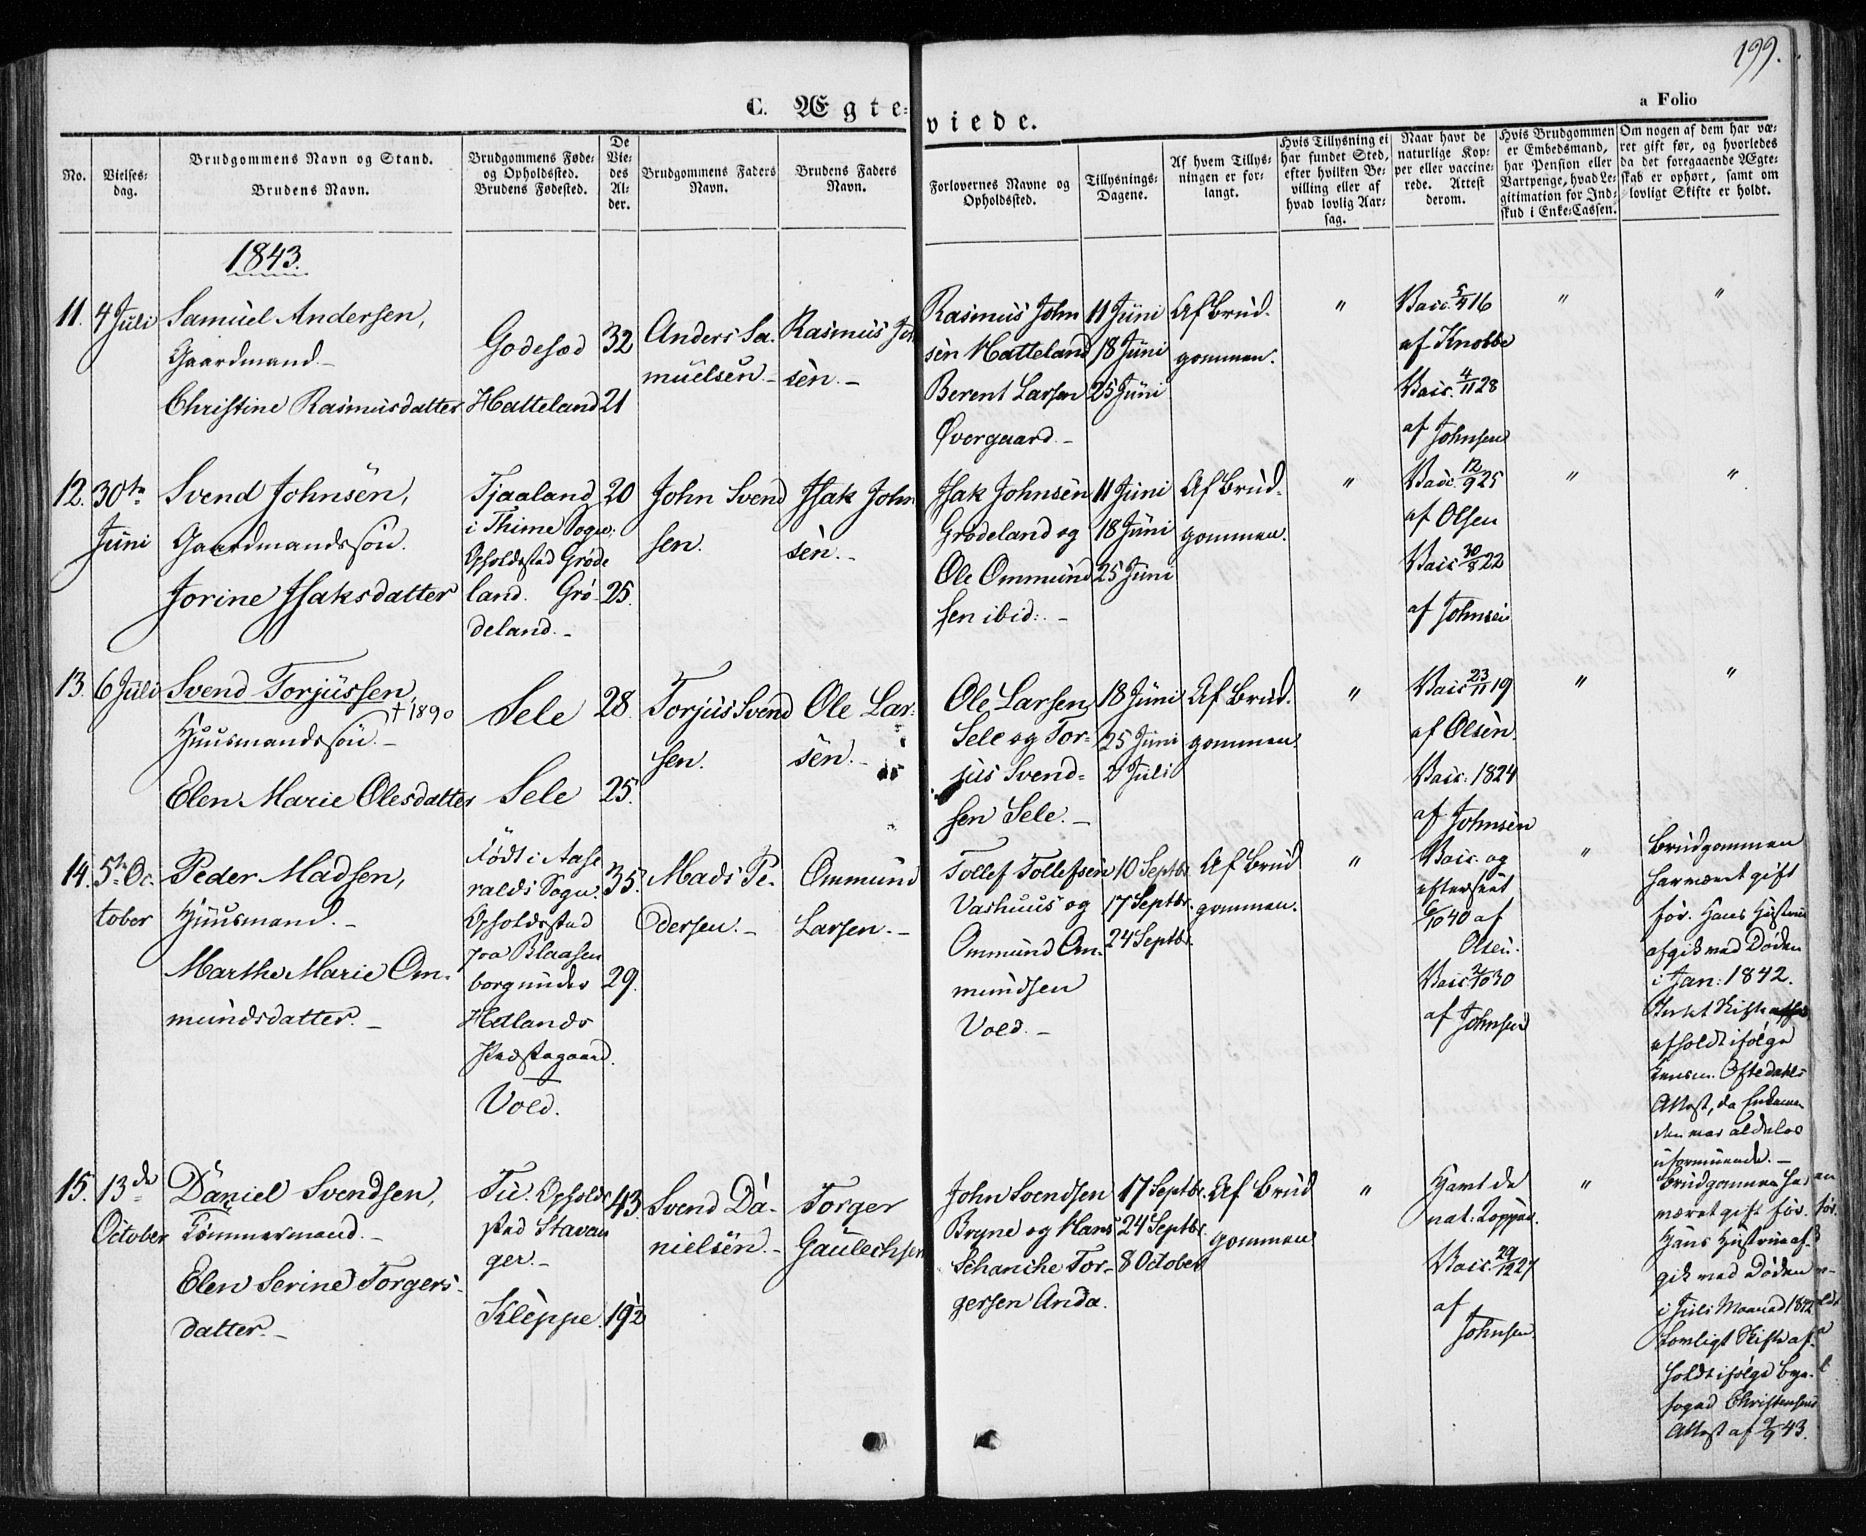 199.
C. Ægteviede.
a Folio
No.
Vielsesdag.
Brudgommens Navn og Stand.
Brudens Navn.
Brudgommens Føde- og Opholdssted.
Brudens Fødested.
De Viedes Alder.
Brudgommens Faders Navn.
Brudens Faders Navn.
Forlovernes Navne og Opholdssted.
Tillysnings-Dagene.
Af hvem Tillysningen er forlangt.
Hvis Tillysning ei har fundet Sted, efter hvilken Bevilling eller af hvad lovlig Aarsag.
Naar havt de naturlige Kopper eller vaccinerede. Attest derom.
Hvis Brudgommen er Embedsmand, har Pension eller Vartpenge, hvad Legitimation for Indskud i Enke-Cassen.
Om nogen af dem har været gift før, og hvorledes da det foregaaende Ægteskab er ophørt, samt om lovligt Skifte er holdt.
1843.
11. 4 Juli
Samuel Andersen,
Gaardmand.
Christine Rasmusdatter
Godesæd 32
Hatteland 21
Anders Sa-
muelsen.
Rasmus Joh
sen.
Rasmus John
sen Hatteland
Berent Larsen
Øvergaard.
11 Juni
18 Juni
25 Juni
Af Brud-
gommen.
"
Vacc. 5/4 16
af Knobbe
Vacc. 4/11 28
af Johnsen
"
"
12. 30te
Juni
Svend Johnsen,
Gaardmandssøn.
Jorine Isaksdatter
Tjaaland 20
i Thime Sogn.
Opholdsstad Grøde
land. Grø- 25.
deland.
John Svend
sen.
Isak John
sen.
Isak Johnsen
Grødeland og
Ole Ommund
sen ibid:
11 Juni
18 Juni
25 Juni
Af Brud-
gommen.
"
Vacc. 12/9 25
af Olsen
Vacc. 30/8 22
af Johnsen
"
"
13. 6 Juli
Svend Torjussen, † 1890
Huusmandssøn.
Elen Marie Olesdatter
Sele 28.
Sele 25.
Torjus Svend
sen.
Ole Lar-
sen.
Ole Larsen
Sele og Tor-
jus Svend-
sen Sele.
18 Juni
25 Juni
2 Juli
Af Brud-
gommen.
"
Vacc. 23/11 19
af Olsen.
Vacc. 1824
af Johnsen
"
"
14. 5te Oc-
tober
Peder Madsen,
Huusmand.
Marthe Marie Om-
mundsdatter.
Født i Aase
ralds Sogn. 35.
Opholdsstad
paa Blaasen
borg under 29.
Hetlands
Præstegaard.
Vold.
Mads Pe-
dersen.
Ommund
Larsen.
Tollef Tollefsen
Vashuus og
Ommund Om-
mundsen
Vold.
10 Septbr.
17 Septbr.
24 Septbr.
Af Brud
gommen.
"
Vacc. og
efterseet
6/10 40 af
Olsen.
Vacc. 2/10 30
af Johnsen
"
Brudgommen
har været gift
før. Hans Hustrue
afgik ved Døden
i Jan: 1842.
Skifte
afholdt ifølge
Lensm. Oftedahls
Attest, da Enkeman
den var aldeles
uformuende.
15. 13de
October
Daniel Svendsen,
Tømmermand.
Elen Serine Torgers-
datter.
Tu. Opholds 43.
stad Stavan
ger.
Kleppe. 19½
Svend Da-
nielsen.
Torger
Gaulechsen
John Svendsen
Bryne og Hans
Schanche Tor-
gersen Anda.
17 Septbr.
24 Septbr.
8 October
Af Brud
gommen
"
Havt de
nat: Kopper.
Vacc. 29/12 27
af
Johnsen
"
Brudgommen har
været gift før.
Hans Hustrue af-
gik ved Døden
i Juli Maaned 1842
Lovligt Skifte af-
holdt ifølge Bye-
foged Christensens
Attest af 9/9 43.